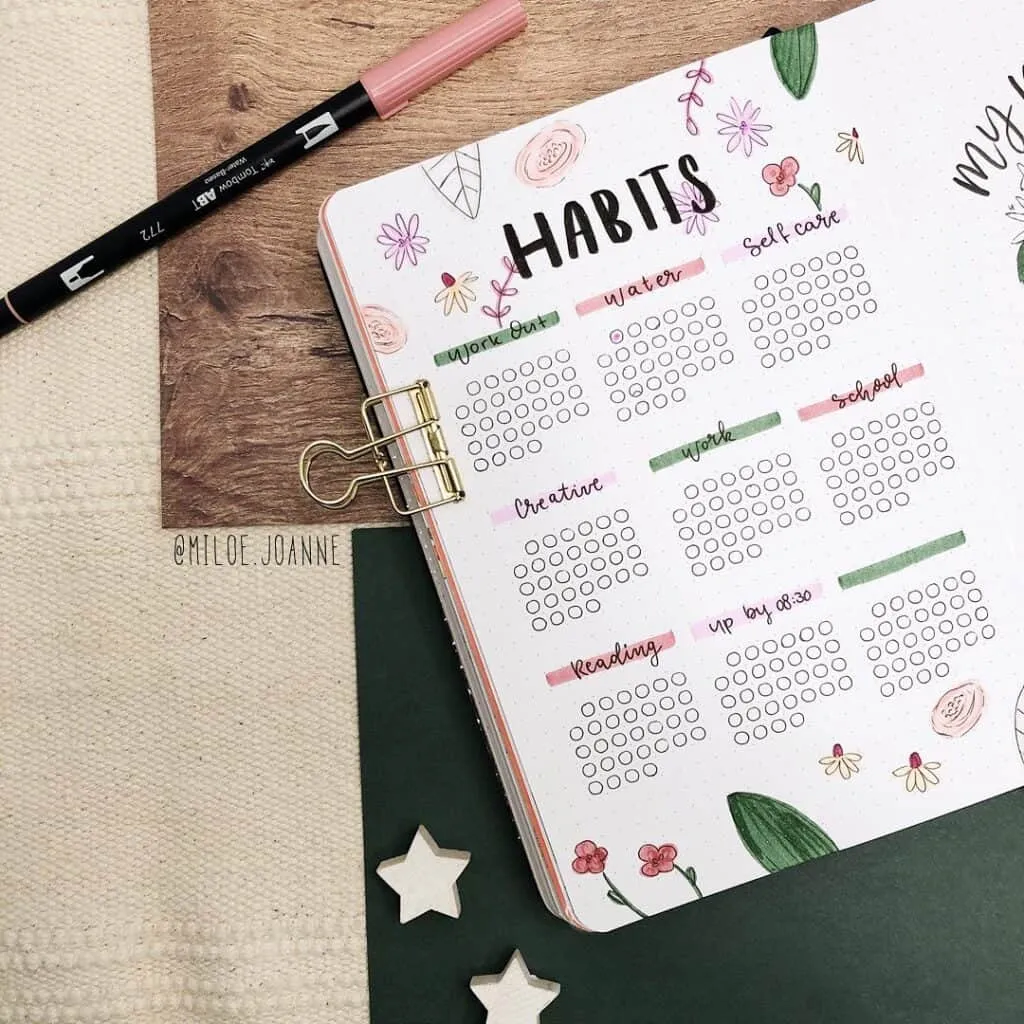 Tombow ABT
Water-Based
772
HABITS
my
Work Out
Water
Self care
Creative
Work
School
Reading
up by 08:30
@MILOE.JOANNE